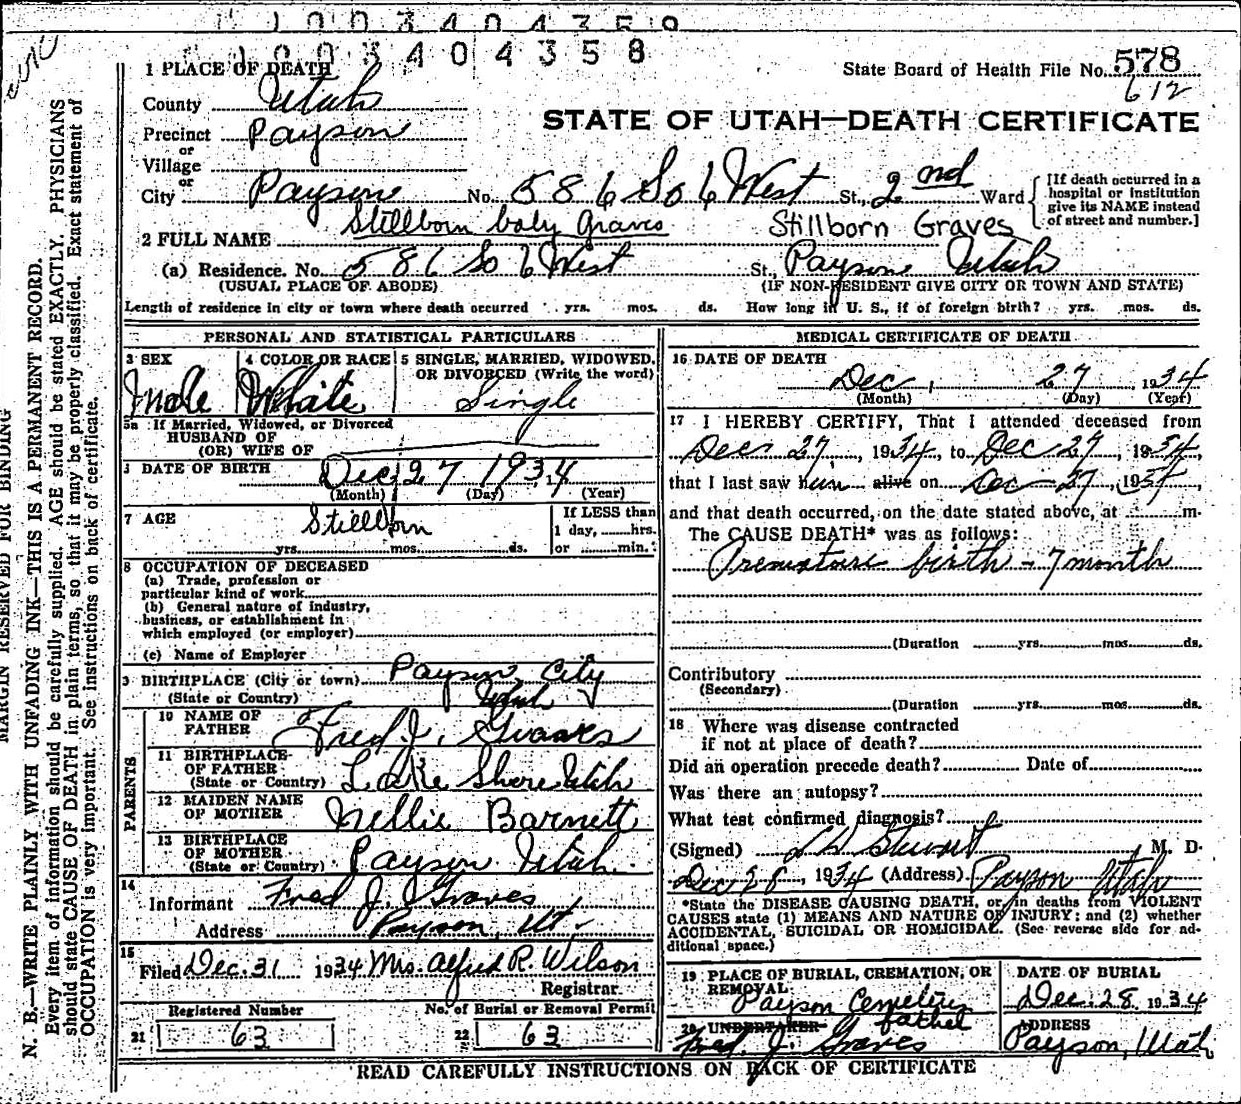 1003404359
1003404358
1 PLACE OF DEATH
State Board of Health File No. 578
612
County Utah
STATE OF UTAH—DEATH CERTIFICATE
Precinct Payson
or
Village
or
City Payson No. 586 So 6 West St., 2nd Ward
[If death occurred in a
hospital or institution
give its NAME instead
of street and number.]
Stillborn baby Graves Stillborn Graves
2 FULL NAME
(a) Residence. No. 586 So 6 West St., Payson Utah
(USUAL PLACE OF ABODE) (IF NON-RESIDENT GIVE CITY OR TOWN AND STATE)
Length of residence in city or town where death occurred yrs. mos. ds. How long in U. S., if of foreign birth? yrs. mos. ds.
PERSONAL AND STATISTICAL PARTICULARS
3 SEX 4 COLOR OR RACE 5 SINGLE, MARRIED, WIDOWED,
OR DIVORCED (Write the word)
Male White Single
5a If Married, Widowed, or Divorced
HUSBAND OF
(OR) WIFE OF
DATE OF BIRTH Dec 27 1934
(Month) (Day) (Year)
7 AGE Stillborn If LESS than
1 day, hrs.
yrs. mos. ds. or min.
8 OCCUPATION OF DECEASED
(a) Trade, profession or
particular kind of work
(b) General nature of industry,
business, or establishment in
which employed (or employer)
(c) Name of Employer
Payson City
9 BIRTHPLACE (City or town)
(State or Country) Utah
PARENTS
10 NAME OF
FATHER Fred J. Graves
11 BIRTHPLACE
OF FATHER
(State or Country) Lake Shore Utah
12 MAIDEN NAME
OF MOTHER Nellie Barnett
13 BIRTHPLACE
OF MOTHER
(State or Country) Payson Utah.
14
Informant Fred J. Graves
Address Payson, Ut.
15
Filed Dec. 31 1934 Mrs. Alfred R. Wilson
Registrar.
Registered Number No. of Burial or Removal Permit
21 63 22 63
MEDICAL CERTIFICATE OF DEATH
16 DATE OF DEATH
Dec, 27 1934
(Month) (Day) (Year)
17 I HEREBY CERTIFY, That I attended deceased from
Dec 27, 1934, to Dec 27, 1934,
that I last saw him alive on Dec 27, 1934
and that death occurred, on the date stated above, at m.
The CAUSE DEATH* was as follows:
Premature birth - 7 month
(Duration yrs. mos. ds.
Contributory
(Secondary)
(Duration yrs. mos. ds.
18 Where was disease contracted
if not at place of death?
Did an operation precede death? Date of
Was there an autopsy?
What test confirmed diagnosis?
(Signed) L W Stewart M. D.
Dec 28, 1934 (Address) Payson Utah
*State the DISEASE CAUSING DEATH, or, in deaths from VIOLENT
CAUSES state (1) MEANS AND NATURE OF INJURY; and (2) whether
ACCIDENTAL, SUICIDAL OR HOMICIDAL. (See reverse side for ad-
ditional space.)
19 PLACE OF BURIAL, CREMATION, OR
REMOVAL
Payson Cemetery
DATE OF BURIAL
Dec. 28 1934
20 UNDERTAKER father
Fred J. Graves
ADDRESS
Payson, Utah
READ CAREFULLY INSTRUCTIONS ON BACK OF CERTIFICATE
MARGIN RESERVED FOR BINDING
N. B.—WRITE PLAINLY WITH UNFADING INK—THIS IS A PERMANENT RECORD.
Every item of information should be carefully supplied. AGE should be stated EXACTLY. PHYSICIANS
should state CAUSE OF DEATH in plain terms, so that it may be properly classified. Exact statement of
OCCUPATION is very important. See instructions on back of certificate.